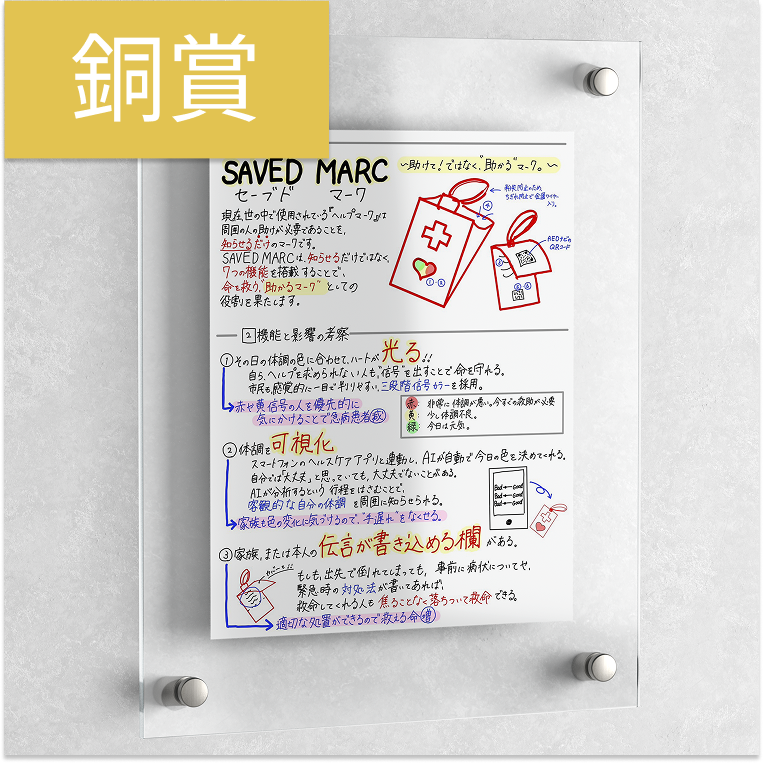 銅賞
SAVED MARC
セーブド マーク
〜助けて!ではなく、"助かる"マーク。〜
現在、世の中で使用されている『ヘルプマーク』は
周囲の人の助けが必要であることを、
知らせるだけのマークです。
SAVED MARCは、知らせるだけではなく、
7つの機能を搭載することで、
命を救う、"助かるマーク"としての
役割を果たします。
紛失防止のため、
ちぎれ防止で金属ワイヤー
入り。
④
AEDナビの
QRコード
①・②
③
2 機能と影響の考察
①その日の体調の色に合わせて、ハートが光る!!
自ら、ヘルプを求められない人も、"信号"を出すことで命を守れる。
市民も、感覚的に一目で判りやすい、三段階信号カラーを採用。
赤や黄信号の人を優先的に
気にかけることで急病患者減
赤: 非常に体調が悪い。今すぐの救助が必要
黄: 少し体調不良。
緑: 今日は元気。
②体調を可視化
スマートフォンのヘルスケアアプリと連動し、AIが自動で今日の色を決めてくれる。
自分では「大丈夫」と思っていても、大丈夫でないことがある。
AIが分析するという行程をはさむことで、
客観的な自分の体調を周囲に知らせられる。
家族も色の変化に気づけるので、"手遅れ"をなくせる。
Bad ←→ Good
Bad ←→ Good
Bad ←→ Good
③家族、または本人の伝言が書き込める欄がある。
もしも、出先で倒れてしまっても、事前に病状についてや、
緊急時の対処法が書いてあれば、
救命してくれる人も焦ることなく落ちついて救命できる。
適切な処置ができるので救える命増